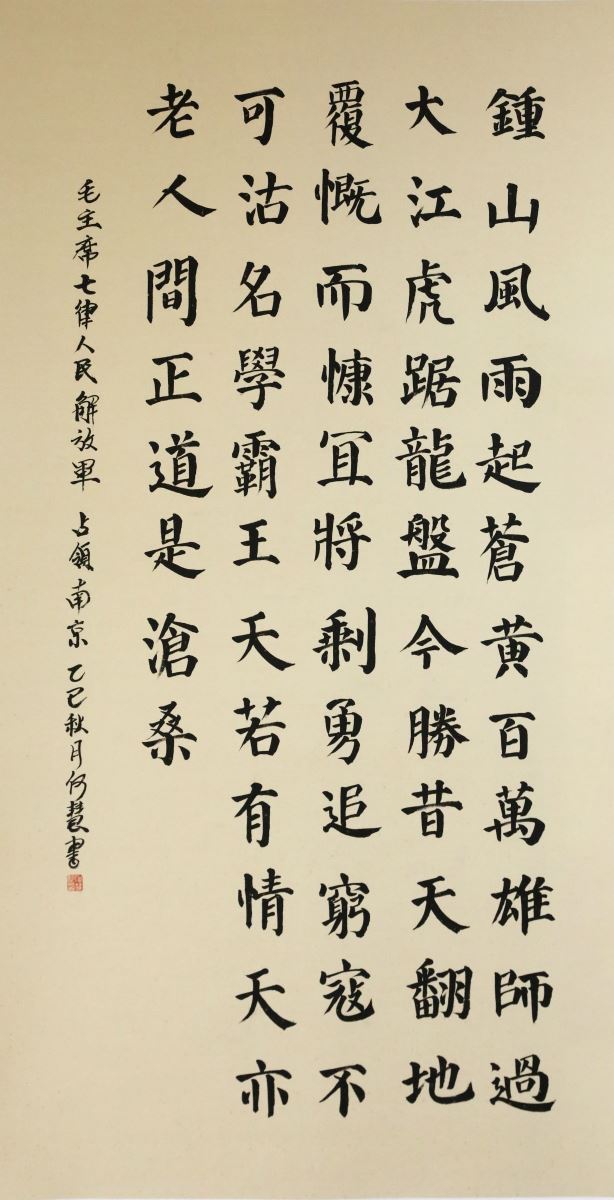 鍾山風雨起蒼黃百萬雄師過
大江虎踞龍盤今勝昔天翻地
覆慨而慷宜將剩勇追窮寇不
可沽名學霸王天若有情天亦
老人間正道是滄桑
毛主席七律人民解放軍占領南京乙巳秋月何慧書